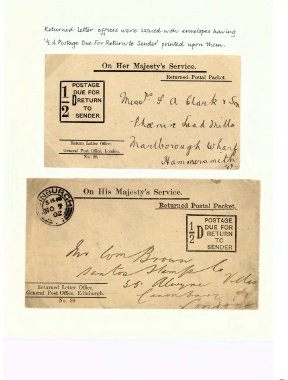 Returned Letter offices were issued with envelopes having
'½d Postage Due For Return to Sender' printed upon them.
On Her Majesty's Service.
Returned Postal Packet.
1/2 D POSTAGE
DUE FOR
RETURN
TO
SENDER.
F A Clark & Son
Phoenix Lead Mills
Marlborough Wharf
Hammersmith
Return Letter Office,
General Post Office, London.
On His Majesty's Service.
Returned Postal Packet.
EDINBURGH
NO 7
02
1/2 D POSTAGE
DUE FOR
RETURN
TO
SENDER
Wm Brown
Santos Stamp Co
55 Alwyne Villas
Canonbury
London
Returned Letter Office,
General Post Office, Edinburgh.